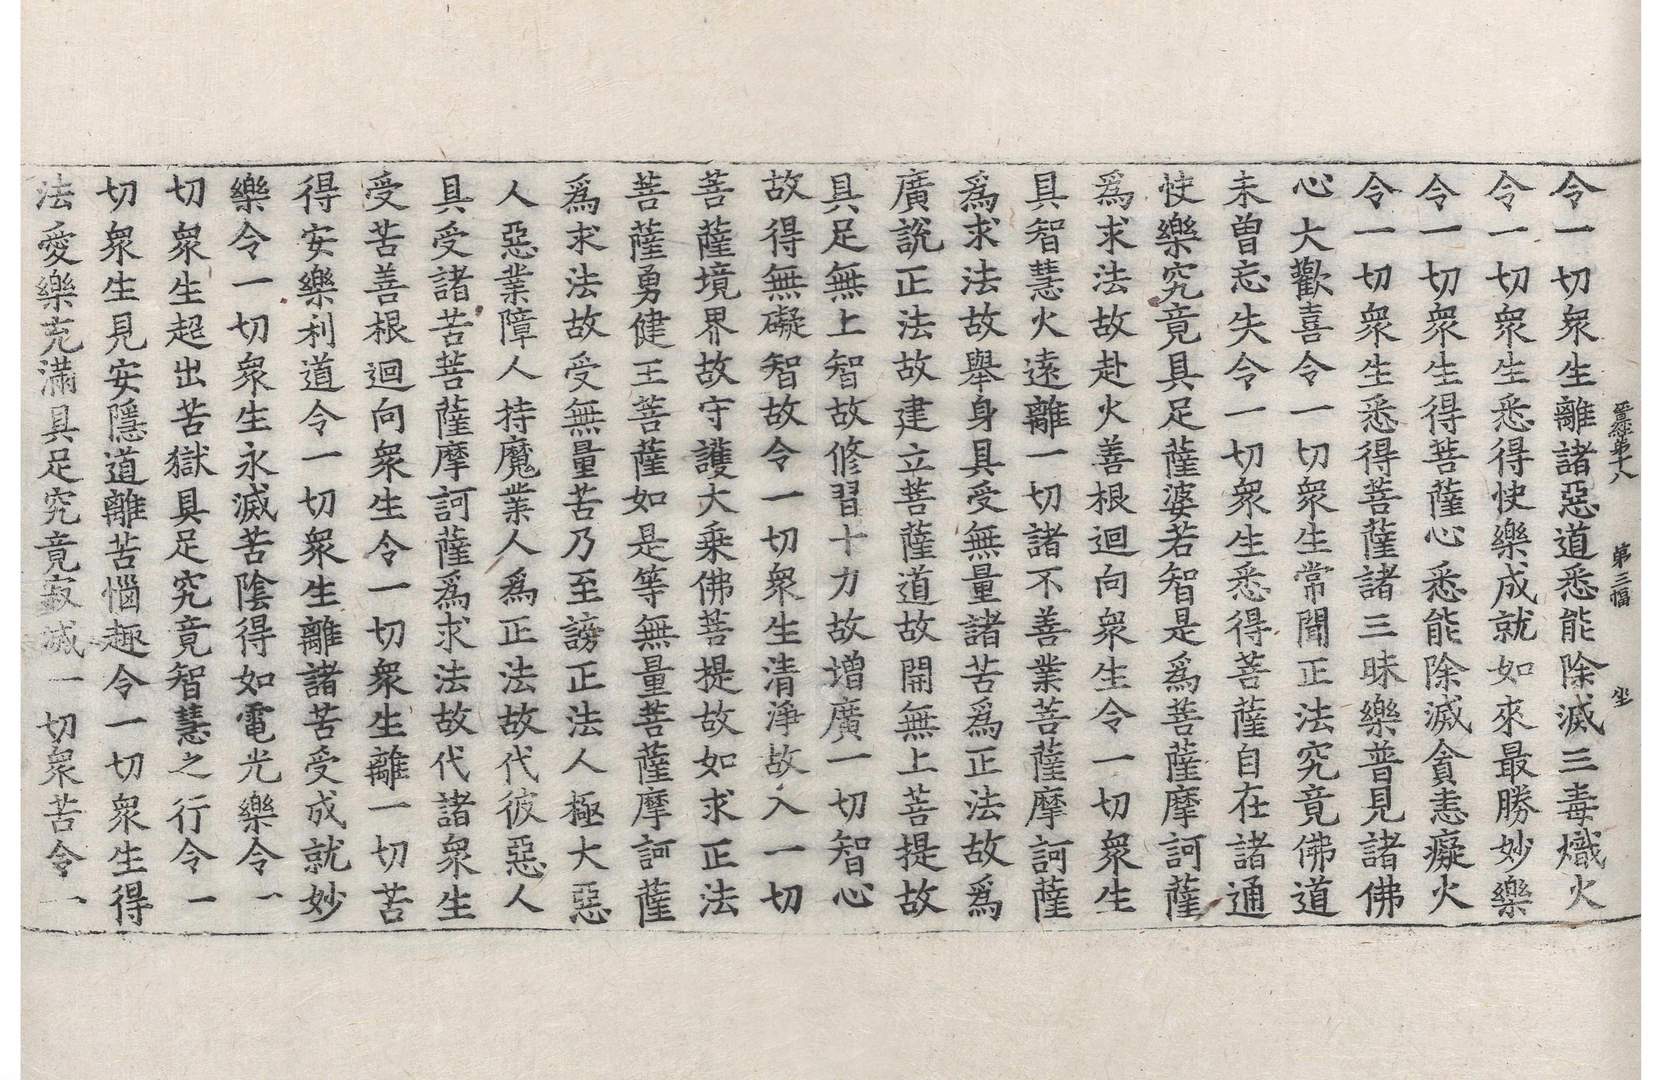 晉經第十八 第三幅 坐
令一切衆生離諸惡道悉能除滅三毒熾火
令一切衆生悉得快樂成就如來最勝妙樂
令一切衆生得菩薩心悉能除滅貪恚癡火
令一切衆生悉得菩薩諸三昧樂普見諸佛
心大歡喜令一切衆生常聞正法究竟佛道
未曽忘失令一切衆生悉得菩薩自在諸通
快樂究竟具足薩婆若智是爲菩薩摩訶薩
爲求法故赴火善根迴向衆生令一切衆生
具智慧火遠離一切諸不善業菩薩摩訶薩
爲求法故舉身具受無量諸苦爲正法故爲
廣說正法故建立菩薩道故開無上菩提故
具足無上智故修習十力故增廣一切智心
故得無礙智故令一切衆生清淨故入一切
菩薩境界故守護大乘佛菩提故如求正法
菩薩勇健王菩薩如是等無量菩薩摩訶薩
爲求法故受無量苦乃至謗正法人極大惡
人惡業障人持魔業人爲正法故代彼惡人
具受諸苦菩薩摩訶薩爲求法故代諸衆生
受苦善根迴向衆生令一切衆生離一切苦
得安樂利道令一切衆生離諸苦受成就妙
樂令一切衆生永滅苦陰得如電光樂令一
切衆生超出苦獄具足究竟智慧之行令一
切衆生見安隱道離苦惱趣令一切衆生得
法愛樂充滿具足究竟寂滅一切衆苦令一